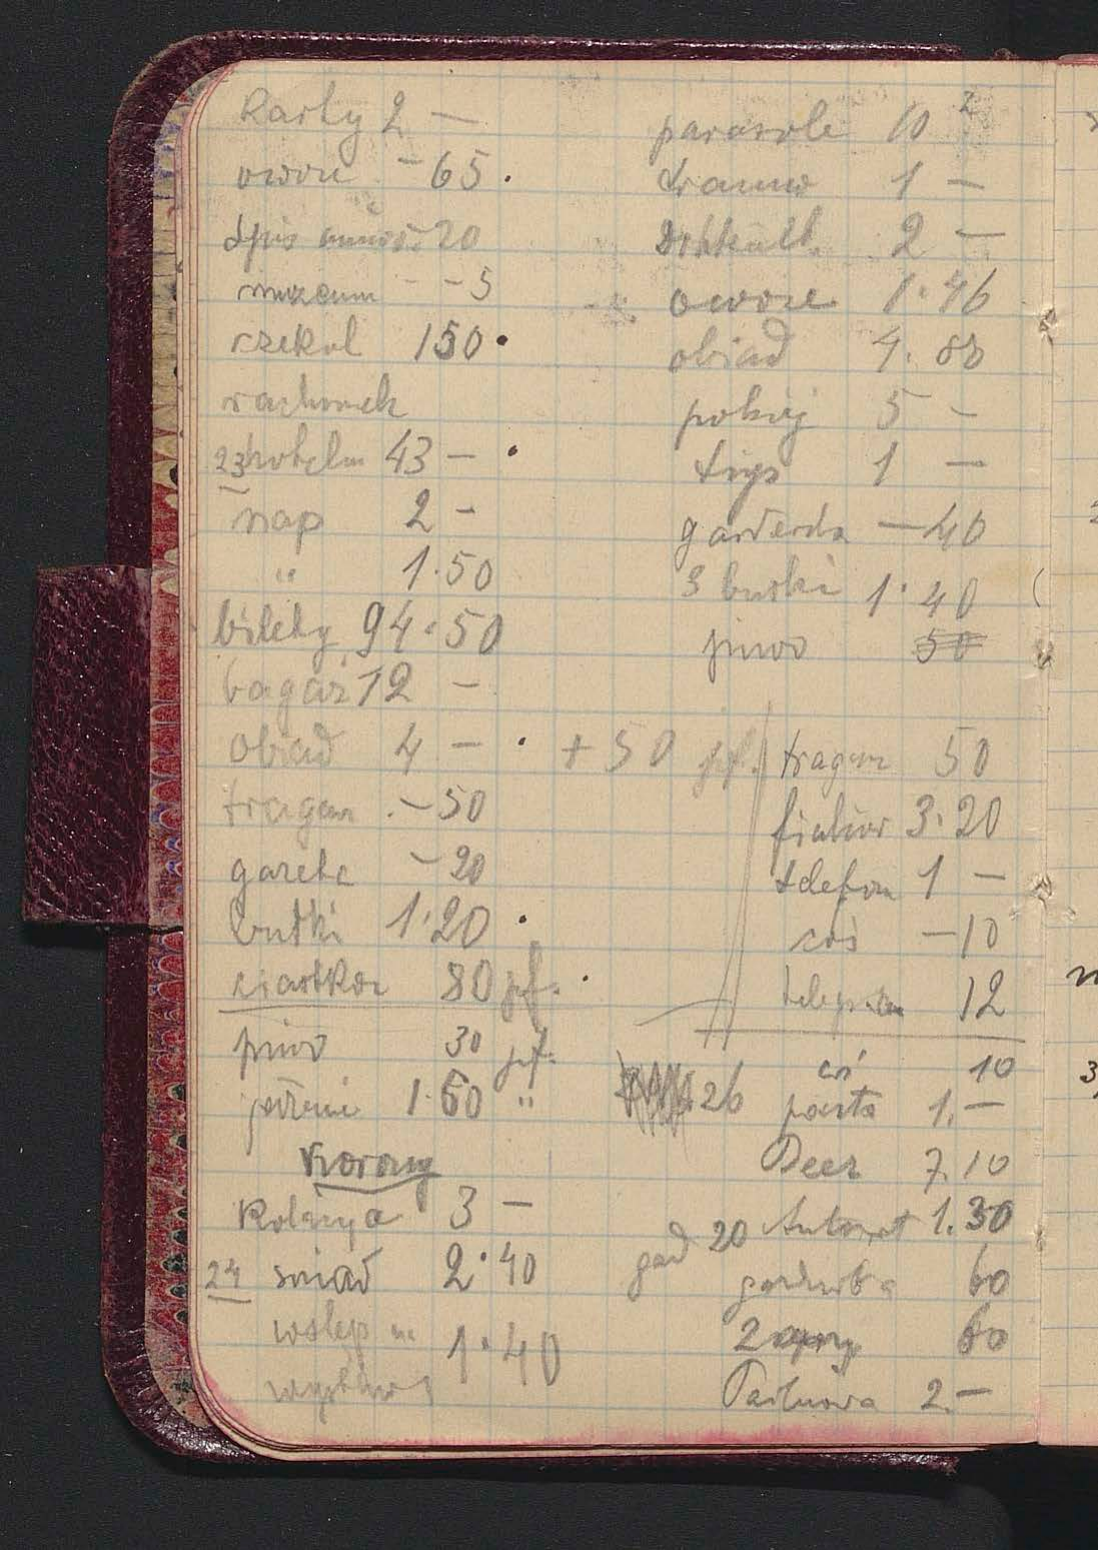 Karty 2 —
owoce — 65 .
spis 20
muzeum - - 5
czekol 150 .
rachunek
23 hotelu 43 — .
nap 2 -
" 1.50
bilety 94.50
bagaż 12 -
obiad 4 — . + 50 pf.
tragarz . — 50
gazeta — 20
bułki 1.20 .
ciastka 80 pf. .
piwo 30 pf.
jedzenie 1.60 "
Kolacya 3 —
24 śniad 2.40
wstęp na 1.40
wystawę
parasole 10
tramw 1 —
2 —
owoce 1.46
obiad 4.
pokój 5 -
tips 1 —
garderoba — 40
3 bułki 1.40
piwo 50
tragarz 50
fiakier 3.20
telefon 1 —
coś — 10
telegram 12
coś 10
26 poczta 1. —
7.10
gad 20 Automat 1.30
garderoba 60
2 60
2. —